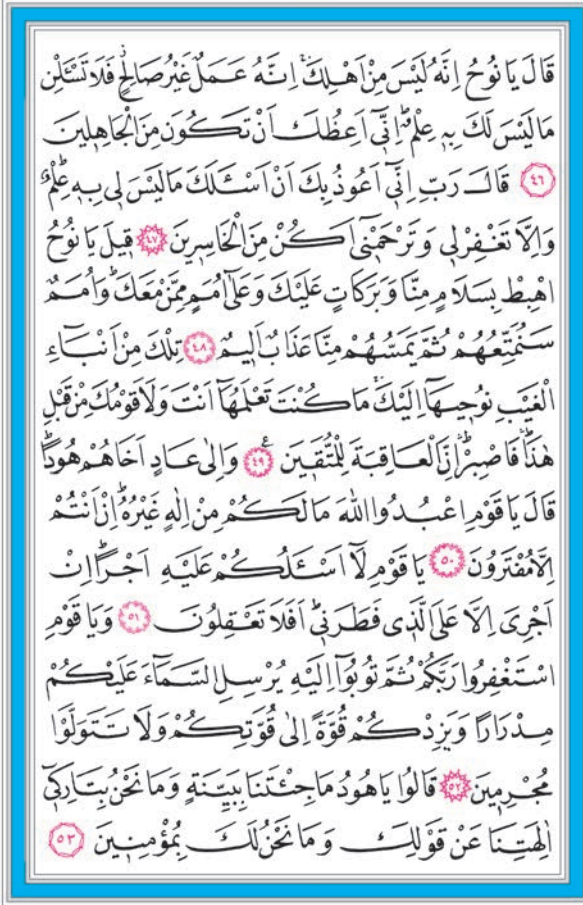 قَالَ يَا نُوحُ اِنَّهُ لَيْسَ مِنْ اَهْلِكَۚ اِنَّهُ عَمَلٌ غَيْرُ صَالِحٍۗ فَلَا تَسْـَٔلْنِ
مَا لَيْسَ لَكَ بِهٖ عِلْمٌۜ اِنّٖٓي اَعِظُكَ اَنْ تَكُونَ مِنَ الْجَاهِلٖينَ
٤٦ قَالَ رَبِّ اِنّٖٓي اَعُوذُ بِكَ اَنْ اَسْـَٔلَكَ مَا لَيْسَ لٖي بِهٖ عِلْمٌۜ
وَاِلَّا تَغْفِرْ لٖي وَتَرْحَمْنٖٓي اَكُنْ مِنَ الْخَاسِرٖينَ ٤٧ قٖيلَ يَا نُوحُ
اهْبِطْ بِسَلَامٍ مِنَّا وَبَرَكَاتٍ عَلَيْكَ وَعَلٰٓى اُمَمٍ مِمَّنْ مَعَكَۜ وَاُمَمٌ
سَنُمَتِّعُهُمْ ثُمَّ يَمَسُّهُمْ مِنَّا عَذَابٌ اَلٖيمٌ ٤٨ تِلْكَ مِنْ اَنْبَٓاءِ
الْغَيْبِ نُوحٖيهَٓا اِلَيْكَۚ مَا كُنْتَ تَعْلَمُهَٓا اَنْتَ وَلَا قَوْمُكَ مِنْ قَبْلِ
هٰذَاۜ فَاصْبِرْۜ اِنَّ الْعَاقِبَةَ لِلْمُتَّقٖينَ ٤٩ وَاِلٰى عَادٍ اَخَاهُمْ هُودًاۜ
قَالَ يَا قَوْمِ اعْبُدُوا اللّٰهَ مَا لَكُمْ مِنْ اِلٰهٍ غَيْرُهُۜ اِنْ اَنْتُمْ
اِلَّا مُفْتَرُونَ ٥٠ يَا قَوْمِ لَٓا اَسْـَٔلُكُمْ عَلَيْهِ اَجْرًاۜ اِنْ
اَجْرِيَ اِلَّا عَلَى الَّذٖي فَطَرَنٖيۜ اَفَلَا تَعْقِلُونَ ٥١ وَيَا قَوْمِ
اسْتَغْفِرُوا رَبَّكُمْ ثُمَّ تُوبُٓوا اِلَيْهِ يُرْسِلِ السَّمَٓاءَ عَلَيْكُمْ
مِدْرَارًا وَيَزِدْكُمْ قُوَّةً اِلٰى قُوَّتِكُمْ وَلَا تَتَوَلَّوْا
مُجْرِمٖينَ ٥٢ قَالُوا يَا هُودُ مَا جِئْتَنَا بِبَيِّنَةٍ وَمَا نَحْنُ بِتَارِكٖٓي
اٰلِهَتِنَا عَنْ قَوْلِكَ وَمَا نَحْنُ لَكَ بِمُؤْمِنٖينَ ٥٣